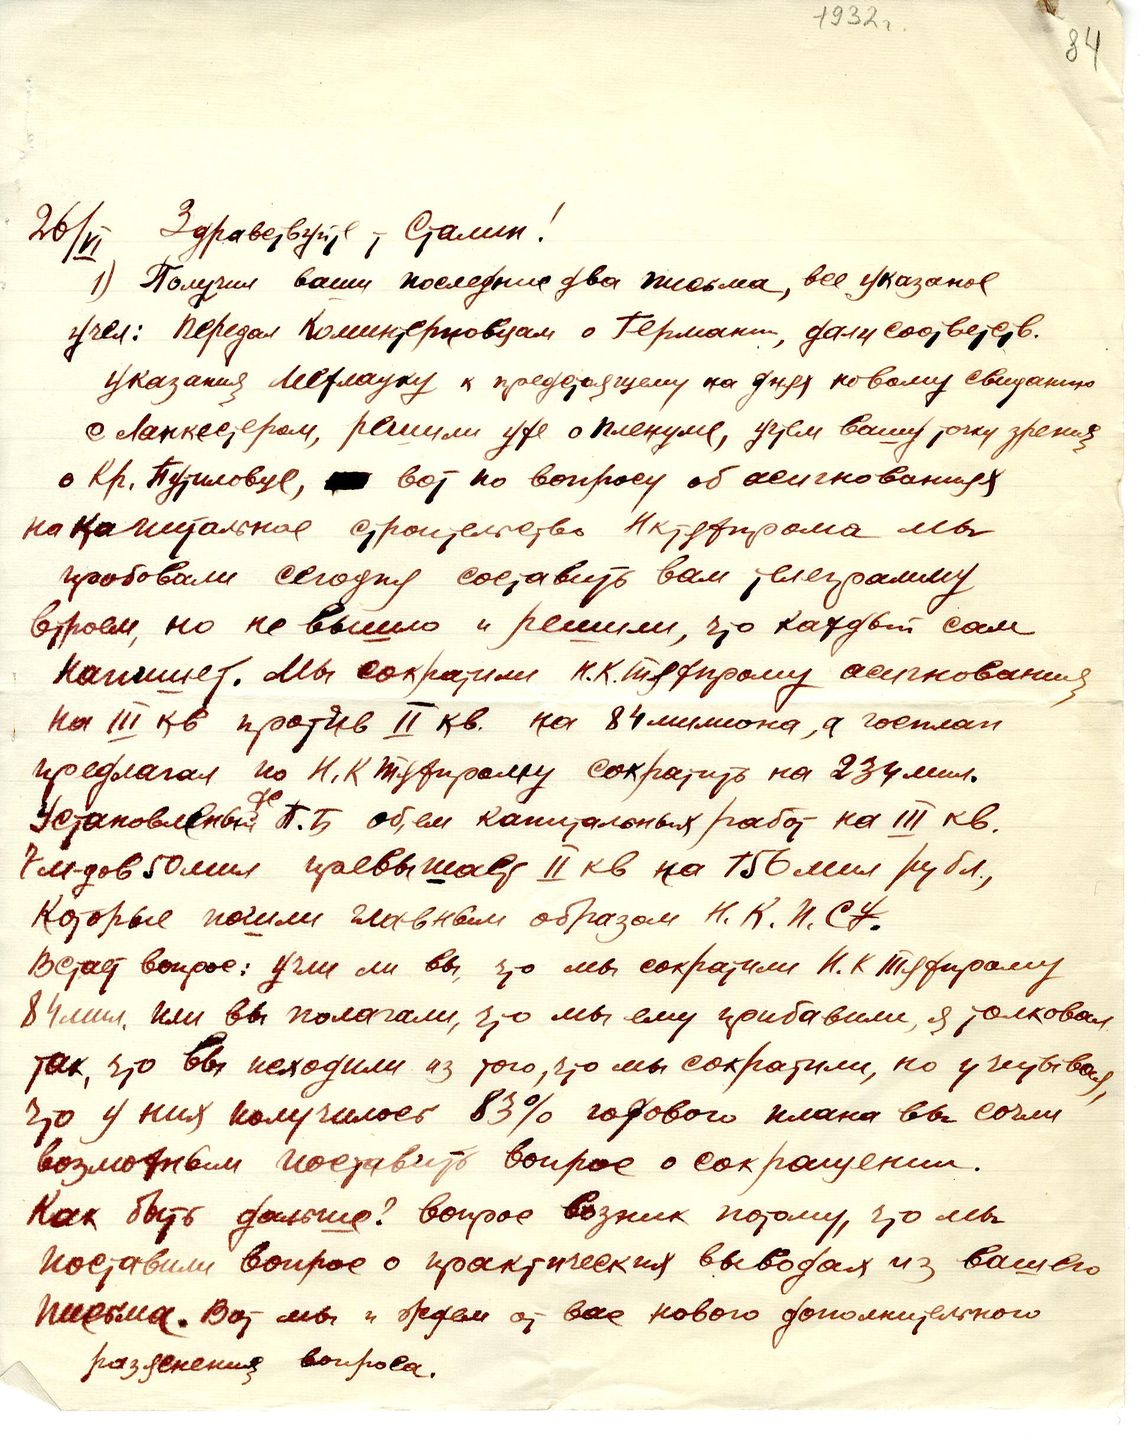 1932г.
84
26/VI Здравствуйте т Сталин!
1) Получил ваши последние два письма, все указаное
учел: передал Коминтерновцам о Германии, дали соответств.
указания Межлауку к предстоящему на днях новому свиданию
с Ланкестером, решили уже о пленуме, учтем вашу точку зрения
о Кр. Путиловце, вот по вопросу об асигнованиях
на капитальное строительство Нктяжпрома мы
пробовали сегодня составить вам телеграмму
втроем, но не вышло и решили, что каждый сам
напишет. Мы сократили Н.К.Тяжпрому асигнования
на III кв против II кв. на 84 милиона, а госплан
предлагал по Н.К Тяжпрому сократить на 234 мил.
Установленный же П.Б обем капитальных работ на III кв.
м-дов 50 мил превышает II кв на 156 мил рубл.,
которые пошли главным образом Н. К. П. С.
Встает вопрос: учли ли вы, что мы сократили Н.К Тяжпрому
84 мил. или вы полагали, что мы ему прибавили, я толковал
так, что вы исходили из того, что мы сократили, но учитывая,
что у них получилось 83% годового плана вы сочли
возможным поставить вопрос о сокращении.
Как быть дальше? вопрос возник потому, что мы
поставили вопрос о практических выводах из вашего
письма. Вот мы и ждем от вас нового дополнительного
разяснения вопроса.